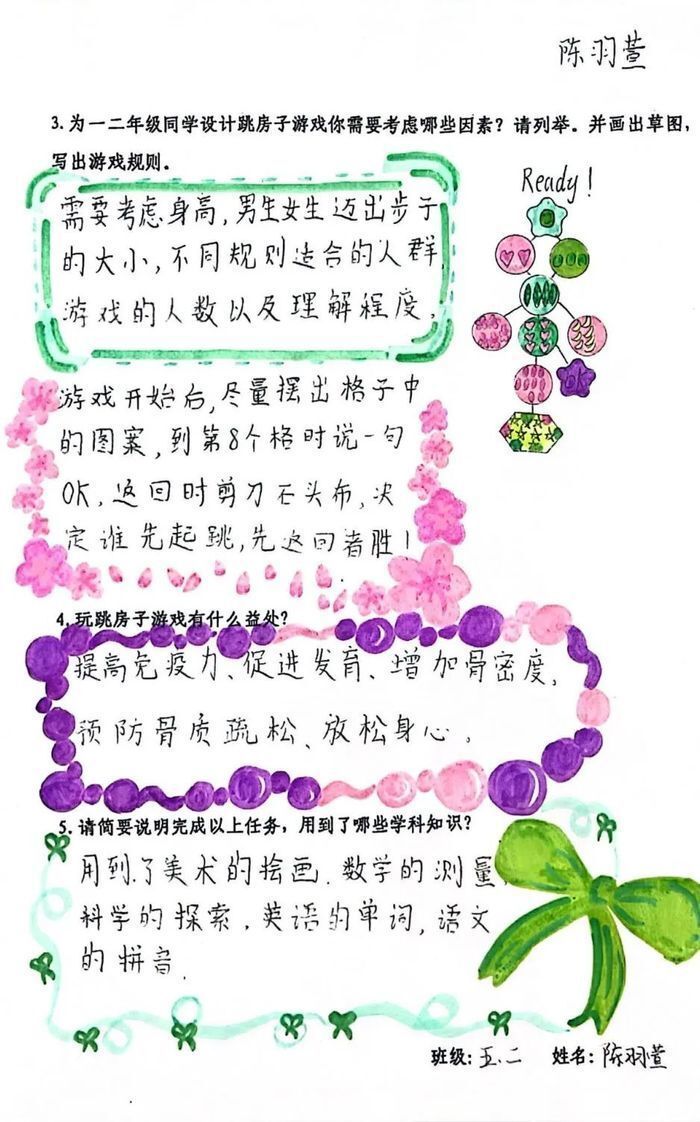 陈羽萱
3. 为一二年级同学设计跳房子游戏你需要考虑哪些因素？请列举。并画出草图，
写出游戏规则。
Ready！
需要考虑身高，男生女生迈出步子
的大小，不同规则适合的人群
游戏的人数以及理解程度。
OK
游戏开始后，尽量摆出格子中
的图案，到第8个格时说一句
OK，返回时剪刀石头布，决
定谁先起跳，先返回者胜！
4. 玩跳房子游戏有什么益处？
提高免疫力、促进发育、增加骨密度、
预防骨质疏松、放松身心。
5. 请简要说明完成以上任务，用到了哪些学科知识？
用到了美术的绘画．数学的测量
科学的探索．英语的单词，语文
的拼音．
班级：五．二 姓名：陈羽萱